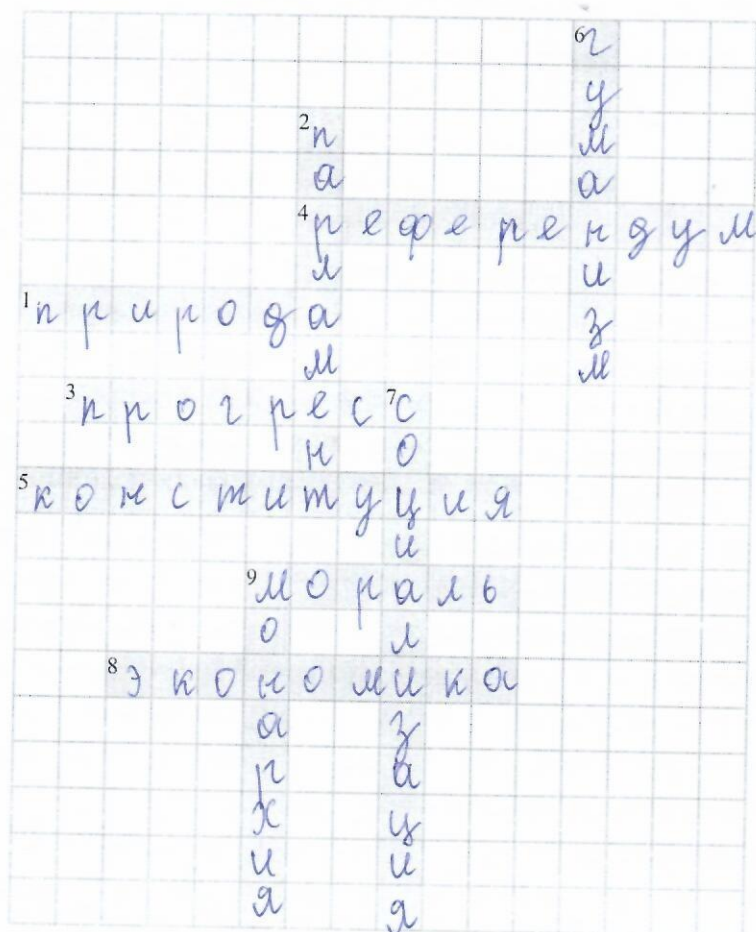 6 гуманизм
2 парламент
4 референдум
1 природа
3 прогресс
7 социализация
5 конституция
9 мораль
монархия
8 экономика